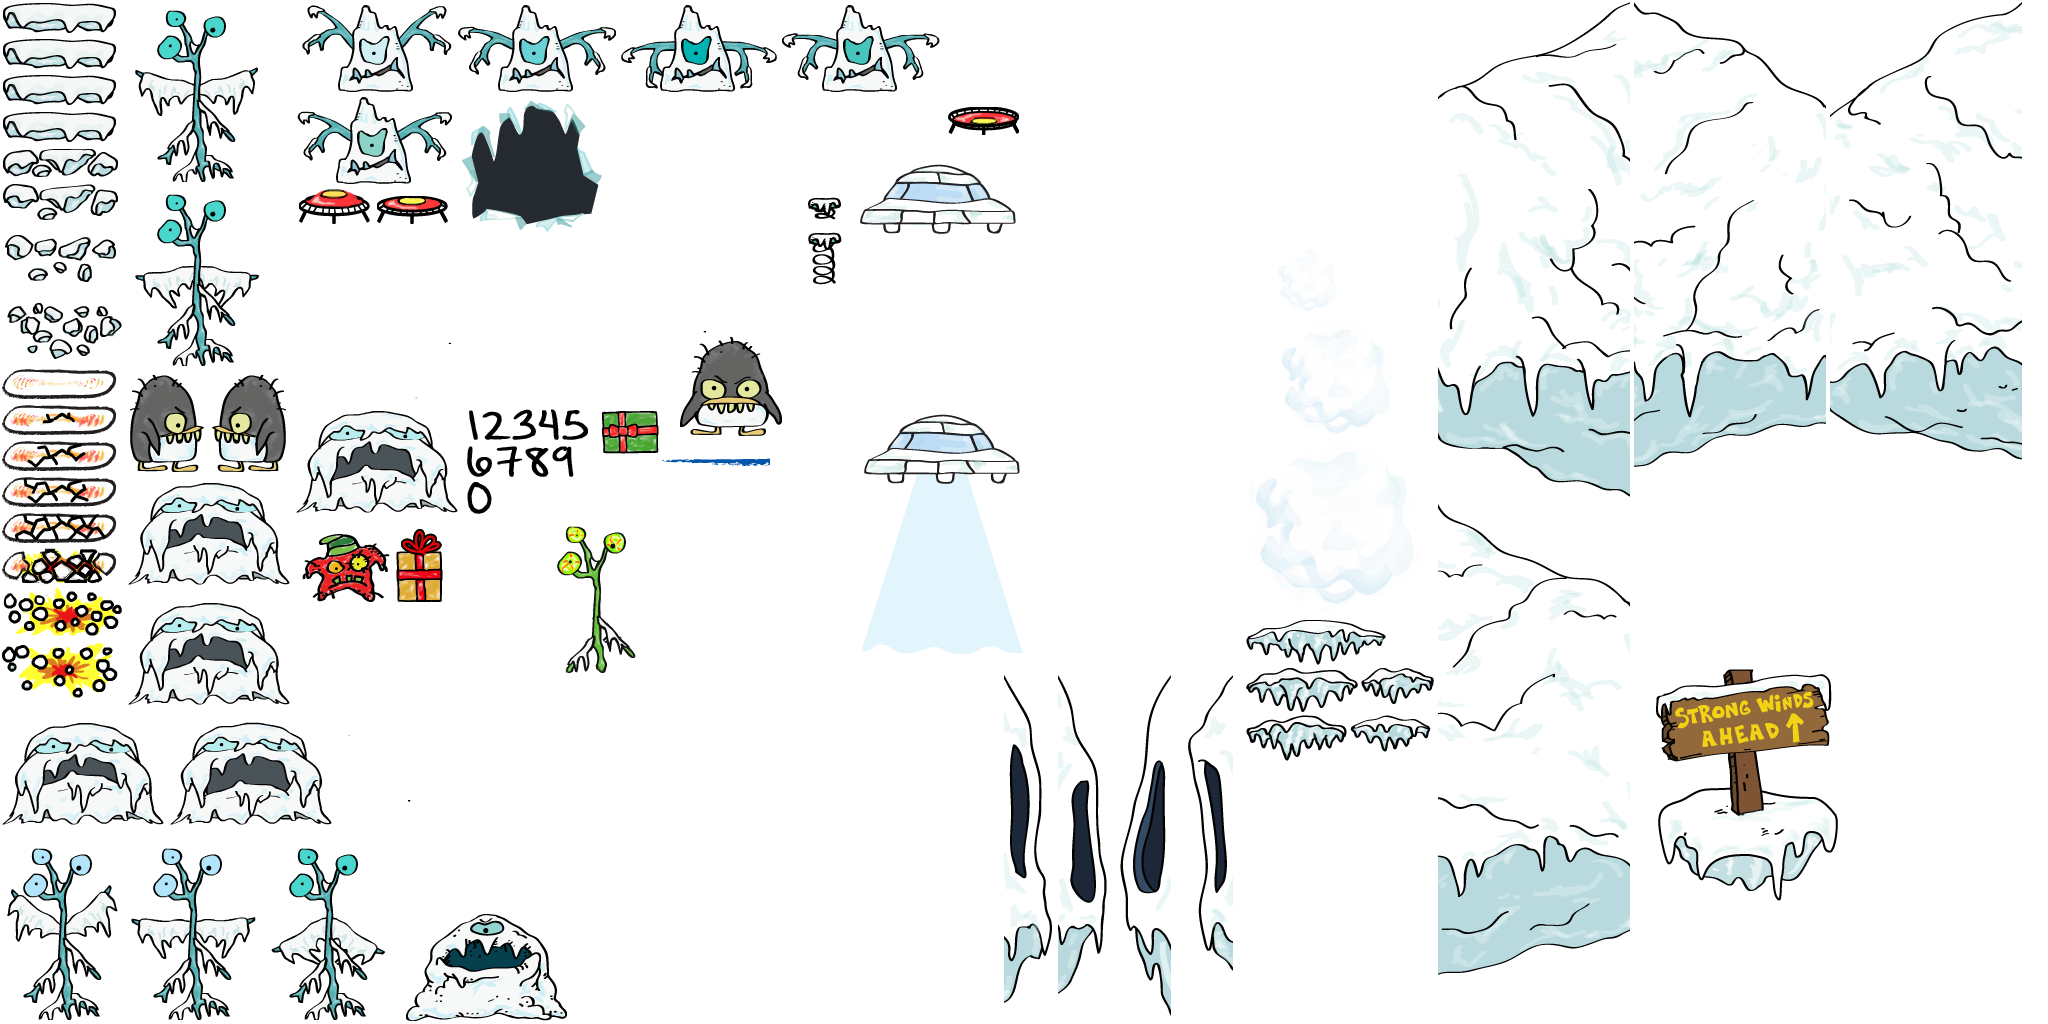 12345
6789
0
STRONG WINDS
AHEAD ↑